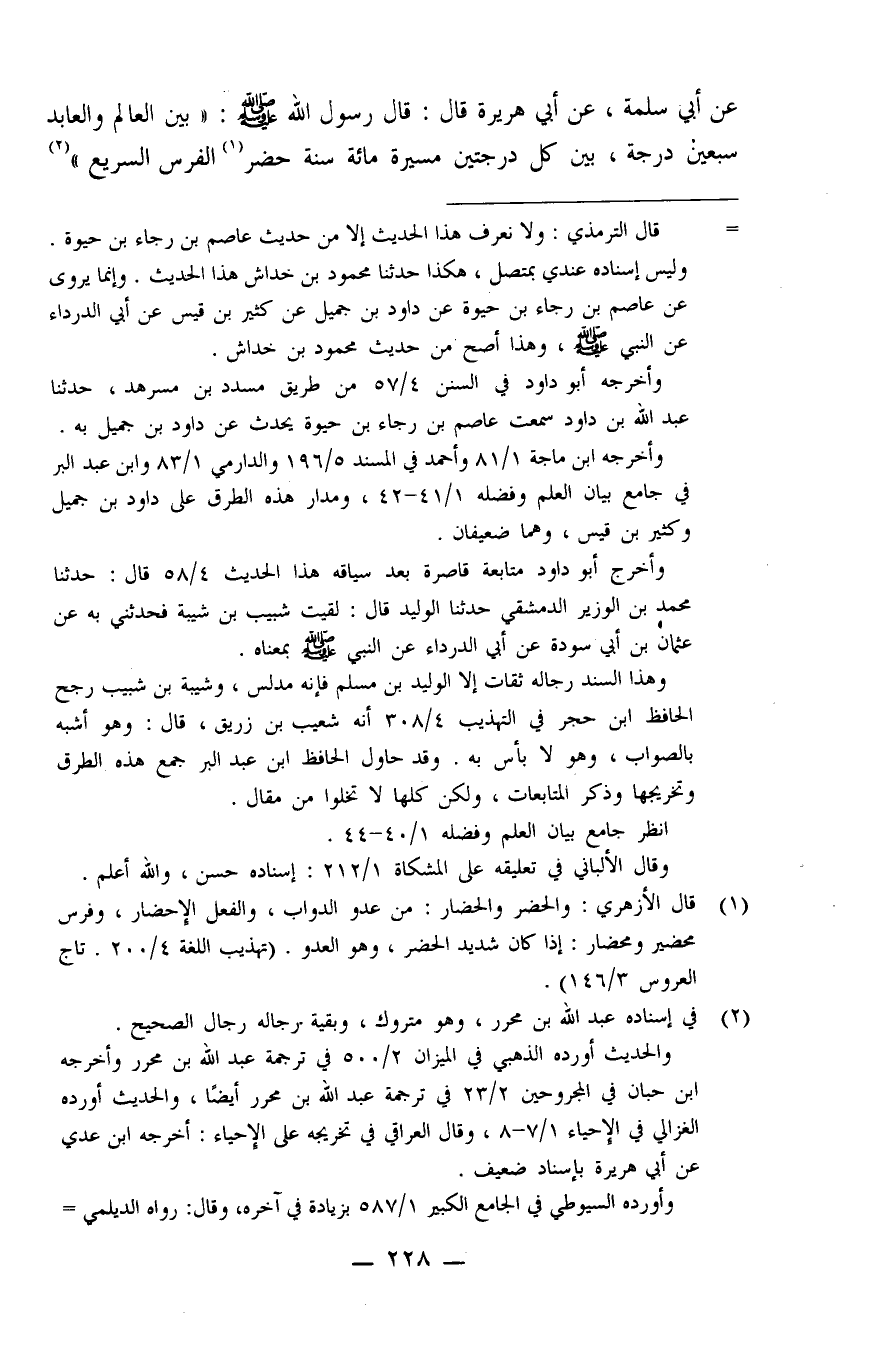 عن أبي سلمة ، عن أبي هريرة قال : قال رسول الله ﷺ : « بين العالم والعابد
سبعين درجة ، بين كل درجتين مسيرة مائة سنة حضر(١) الفرس السريع »(٢)
= قال الترمذي : ولا نعرف هذا الحديث إلا من حديث عاصم بن رجاء بن حيوة .
وليس إسناده عندي بمتصل ، هكذا حدثنا محمود بن خداش هذا الحديث . وإنما يروى
عن عاصم بن رجاء بن حيوة عن داود بن جميل عن كثير بن قيس عن أبي الدرداء
عن النبي ﷺ ، وهذا أصح من حديث محمود بن خداش .
وأخرجه أبو داود في السنن ٥٧/٤ من طريق مسدد بن مسرهد ، حدثنا
عبد الله بن داود سمعت عاصم بن رجاء بن حيوة يحدث عن داود بن جميل به .
وأخرجه ابن ماجة ٨١/١ وأحمد في المسند ١٩٦/٥ والدارمي ٨٣/١ وابن عبد البر
في جامع بيان العلم وفضله ٤١/١-٤٢ ، ومدار هذه الطرق على داود بن جميل
وكثير بن قيس ، وهما ضعيفان .
وأخرج أبو داود متابعة قاصرة بعد سياقه هذا الحديث ٥٨/٤ قال : حدثنا
محمد بن الوزير الدمشقي حدثنا الوليد قال : لقيت شبيب بن شيبة فحدثني به عن
عثمان بن أبي سودة عن أبي الدرداء عن النبي ﷺ بمعناه .
وهذا السند رجاله ثقات إلا الوليد بن مسلم فإنه مدلس ، وشيبة بن شبيب رجح
الحافظ ابن حجر في التهذيب ٣٠٨/٤ أنه شعيب بن زريق ، قال : وهو أشبه
بالصواب ، وهو لا بأس به . وقد حاول الحافظ ابن عبد البر جمع هذه الطرق
وتخريجها وذكر المتابعات ، ولكن كلها لا تخلوا من مقال .
انظر جامع بيان العلم وفضله ٤٠/١-٤٤ .
وقال الألباني في تعليقه على المشكاة ٢١٢/١ : إسناده حسن ، والله أعلم .
(١) قال الأزهري : والحضر والحضار : من عدو الدواب ، والفعل الإحضار ، وفرس
محضير ومحضار : إذا كان شديد الحضر ، وهو العدو . (تهذيب اللغة ٢٠٠/٤ . تاج
العروس ١٤٦/٣) .
(٢) في إسناده عبد الله بن محرر ، وهو متروك ، وبقية رجاله رجال الصحيح .
والحديث أورده الذهبي في الميزان ٥٠٠/٢ في ترجمة عبد الله بن محرر وأخرجه
ابن حبان في المجروحين ٢٣/٢ في ترجمة عبد الله بن محرر أيضًا ، والحديث أورده
الغزالي في الإحياء ٧/١-٨ ، وقال العراقي في تخريجه على الإحياء : أخرجه ابن عدي
عن أبي هريرة بإسناد ضعيف .
وأورده السيوطي في الجامع الكبير ٥٨٧/١ بزيادة في آخره، وقال: رواه الديلمي =
— ٢٢٨ —